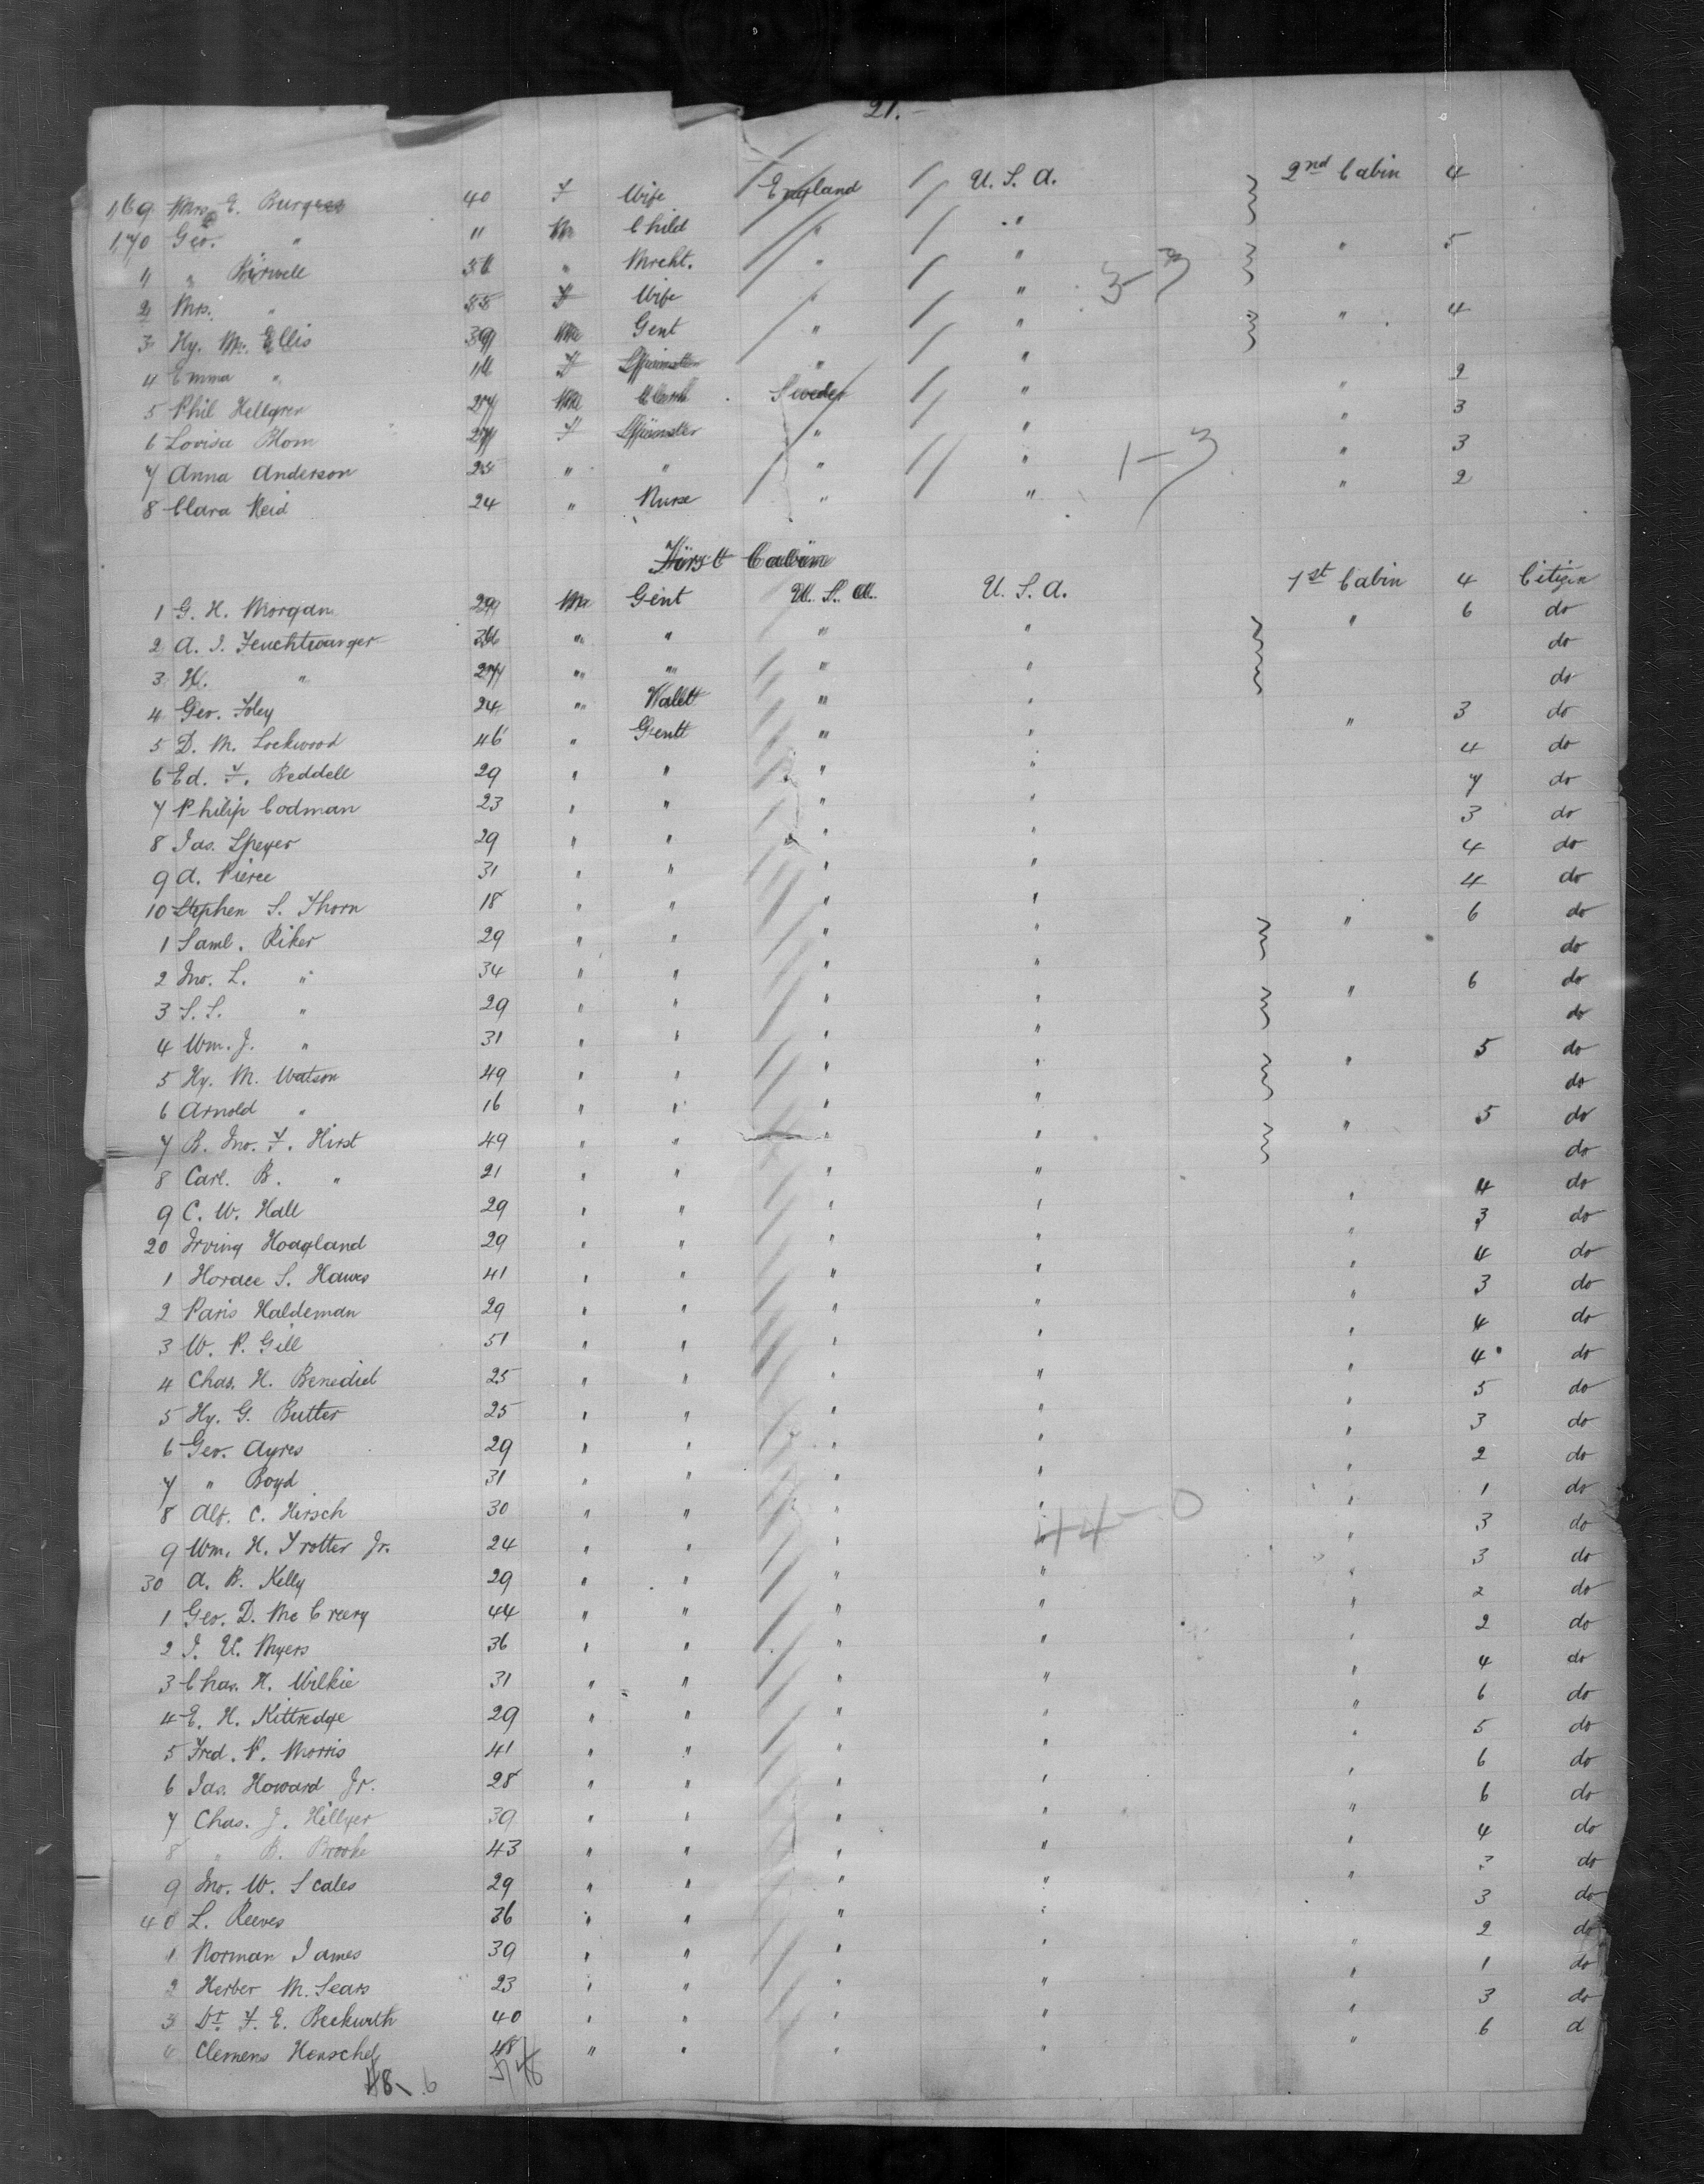 21.-
169 Mrs. E. Burgess 40 F Wife England U. S. A. 2nd Cabin 4
170 Geo. " 11 M Child " "
1 " Kirwell 56 " Mrcht. " " " 5
2 Mrs. " 55 F Wife " "
3-3
3 Hy. M. Ellis 39 M Gent " " " 4
4 Emma " 16 F Spinster " "
5 Phil Hellgren 27 M Clerk Sweden " " 2
6 Lovisa Blom 27 F Spinster " " " 3
7 Anna Anderson 25 " " " " " 3
1-3
8 Clara Reid 24 " Nurse " " " 2
First Cabin
1 G. H. Morgan 29 M Gent U. S. A. U. S. A. 1st Cabin 4 Citizen
2 A. J. Feuchtwanger 36 " " " " " 6 do
3 H. " 27 " " " " do
4 Geo. Foley 24 " Valet " " do
5 D. M. Lockwood 46 " Gent " " " 3 do
6 Ed. F. Beddell 29 " " " " 4 do
7 Philip Codman 23 " " " " 7 do
8 Jas. Speyer 29 " " " " 3 do
9 A. Pierce 31 " " " " 4 do
10 Stephen S. Thorn 18 " " " " 4 do
1 Saml. Riker 29 " " " " " 6 do
2 Jno. L. " 34 " " " " do
3 S. S. " 29 " " " " " 6 do
4 Wm. J. " 31 " " " " do
5 Hy. M. Watson 49 " " " " " 5 do
6 Arnold " 16 " " " " do
7 B. Jno. F. Hirst 49 " " " " " 5 do
8 Carl. B. " 21 " " " " do
9 C. W. Hall 29 " " " " " 4 do
20 Irving Hoagland 29 " " " " " 3 do
1 Horace S. Hawes 41 " " " " " 4 do
2 Paris Haldeman 29 " " " " " 3 do
3 W. P. Gill 51 " " " " " 4 do
4 Chas. H. Benedict 25 " " " " " 4 do
5 Hy. G. Butter 25 " " " " " 5 do
6 Geo. Ayres 29 " " " " " 3 do
7 " Boyd 31 " " " " " 2 do
8 Alf. C. Hirsch 30 " " " " " 1 do
44-0
9 Wm. H. Trotter Jr. 24 " " " " " 3 do
30 A. B. Kelly 29 " " " " " 3 do
1 Geo. D. McCreery 44 " " " " " 2 do
2 J. U. Myers 36 " " " " " 2 do
3 Chas. H. Wilkie 31 " " " " " 4 do
4 E. H. Kittredge 29 " " " " " 6 do
5 Fred. P. Morris 41 " " " " " 5 do
6 Jas. Howard Jr. 28 " " " " " 6 do
7 Chas. J. Hillyer 39 " " " " " 6 do
8 " B. Brooke 43 " " " " " 4 do
9 Jno. W. Scales 29 " " " " " 3 do
40 L. Reeves 36 " " " " 3 do
1 Norman James 39 " " " " " 2 do
2 Herber M. Sears 23 " " " " " 1 do
3 Dr. F. E. Beckwith 40 " " " " " 3 do
4 Clemens Herschel 48 " " " " " 6 d
48-6